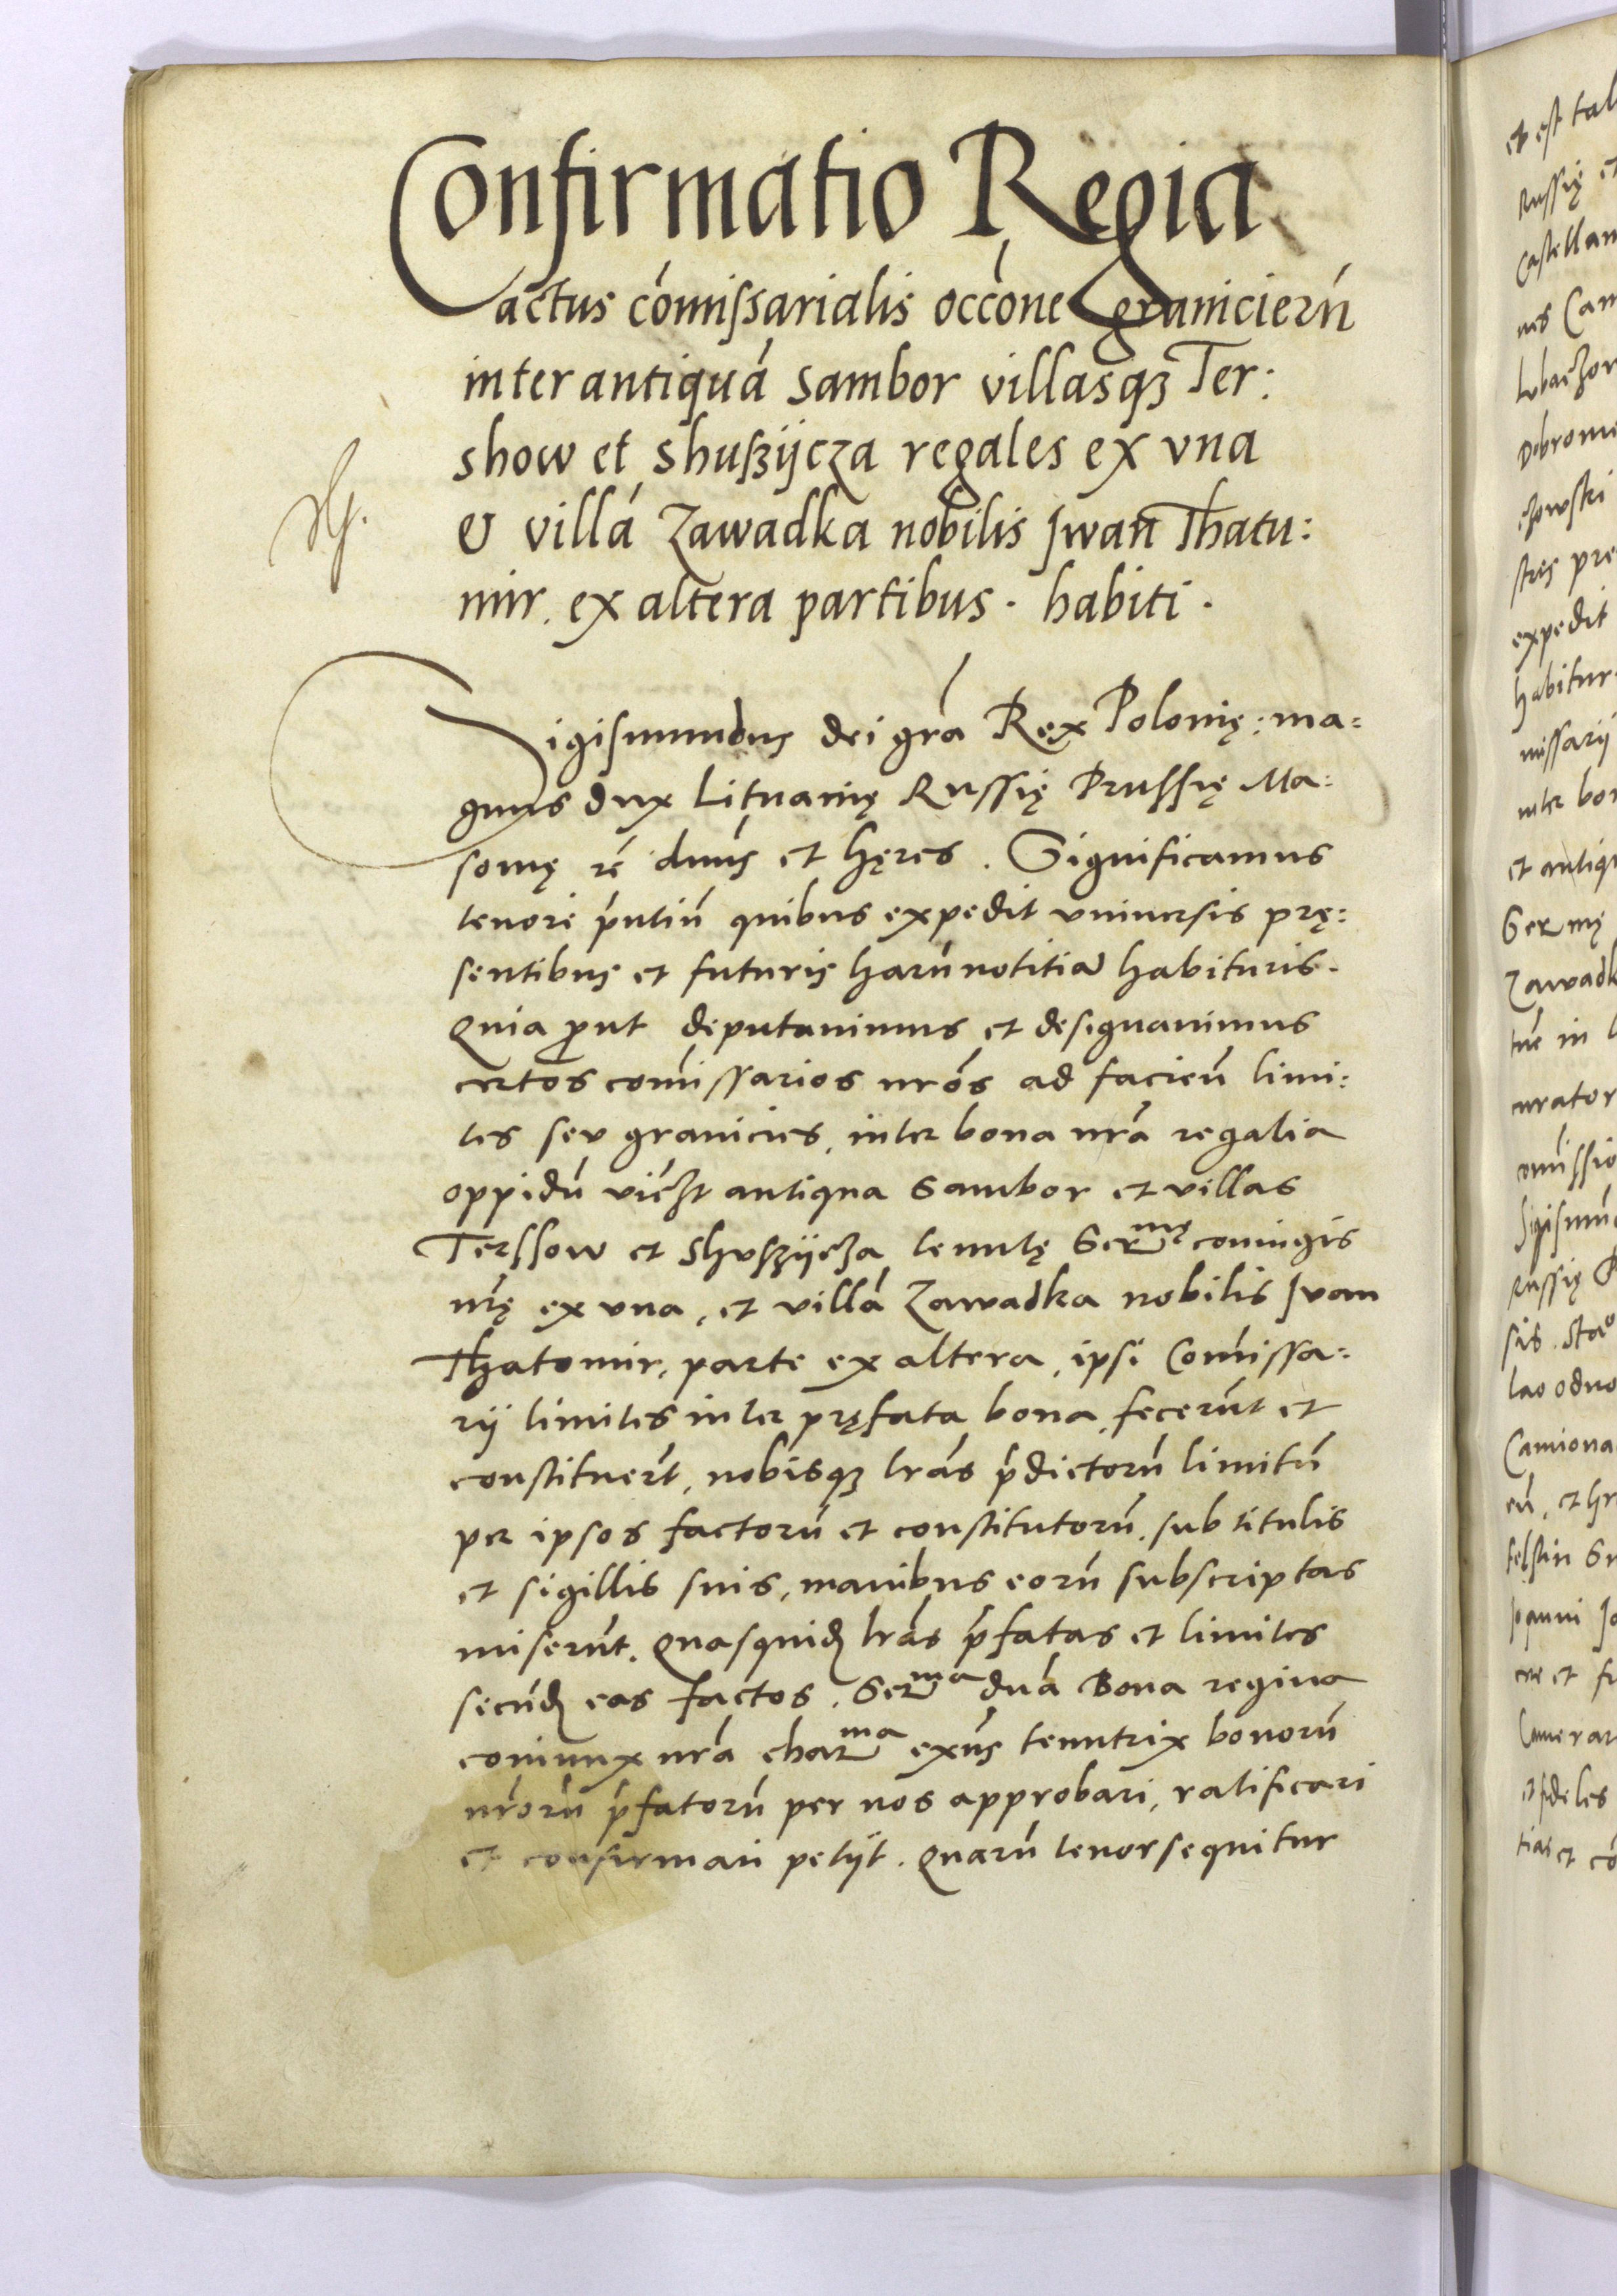 Confirmatio Regia
actus cómissarialis occóne granicierú
inter antiquá Sambor villasqꝫ Ter:
show et Shuszijcza regales ex vna
& villá Zawadka nobilis Iwan Thatu:
mir. ex altera partibus. habiti.
Sigismundus dei grá Rex Polonię: ma:
gnus dux Lituanię Russię Prussię Ma:
souię ré dnús et hęres. Significamus
tenore pńtiú quibus expedit vniuersis prę:
sentibus et futuris harú notitiá habituris.
Quia prout deputauimus et designauimus
certos comissarios nrós ad facień limi:
tes seu granicies, inter bona nrá regalia
oppidú vićꝫt antiqua Sambor et villas
Terssow et Shuszijcza tenutę Serᵐᵉ coniugis
nrę ex vna, et villá Zawadka nobilis Ivan
Thatomir, parte ex altera, ipsi Comissa:
rij limites inter pręfata bona fecerút et
constituerút, nobisqꝫ lrás pdictorú limitú
per ipsos factorú et constitutorú, sub titulis
et sigillis suis, manibus eorú subscriptas
miserút. Quasquid lrás pfatas et limites
secúd eas factos. Serᵐᵃ dná Bona regina
coniunx nrá charᵐᵃ exńs tenutrix bonorú
nrorú pfatorú per nos approbari, ratificari
et confirmari petijt. Quarú tenor sequitur
et est tal
Russię et
Castellan
expedit
habitur
missarij
inter bo
et antiq
Zawadk
curator
Russię P
Camiona